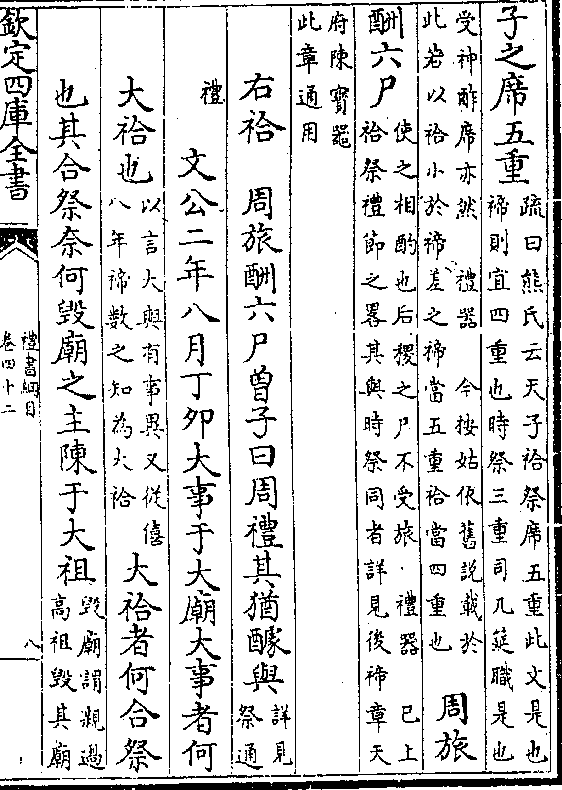 子之席五重
疏曰熊氏云天子祫祭席五重此文是也
禘則宜四重也時祭三重司几筵職是也
受神酢席亦然　禮器　今按姑依舊說載於
此若以祫小於禘差之禘當五重祫當四重也
周旅
酬六尸
使之相酌也后稷之尸不受旅．禮器　已上
祫祭禮節之畧其與時祭同者詳見後禘章天
府陳寶器
此章通用
右祫　周旅酬六尸曾子曰周禮其猶醵與
詳見
祭通
禮
文公二年八月丁卯大事于大廟大事者何
大祫也
以言大與有事異又從僖
八年禘數之知為大祫
大祫者何合祭
也其合祭奈何毀廟之主陳于大祖
毀廟謂親過
高祖毀其廟
欽定四庫全書
禮書綱目
卷四十二
八